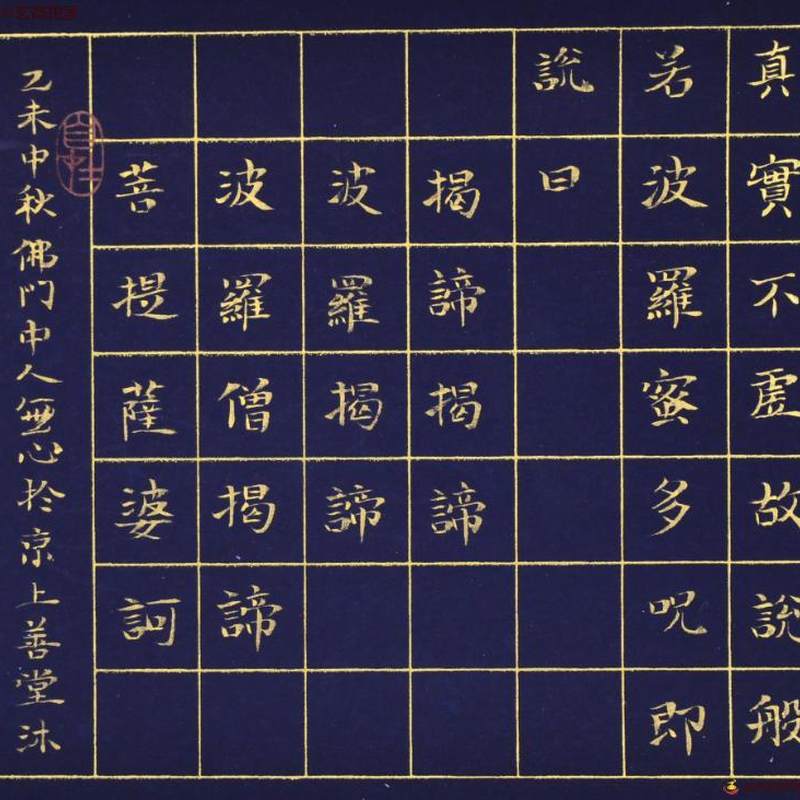 真實不虛故說般
若波羅蜜多呪即
說曰
揭諦揭諦
波羅揭諦
波羅僧揭諦
菩提薩婆訶
乙未中秋佛門中人無心於京上善堂沐